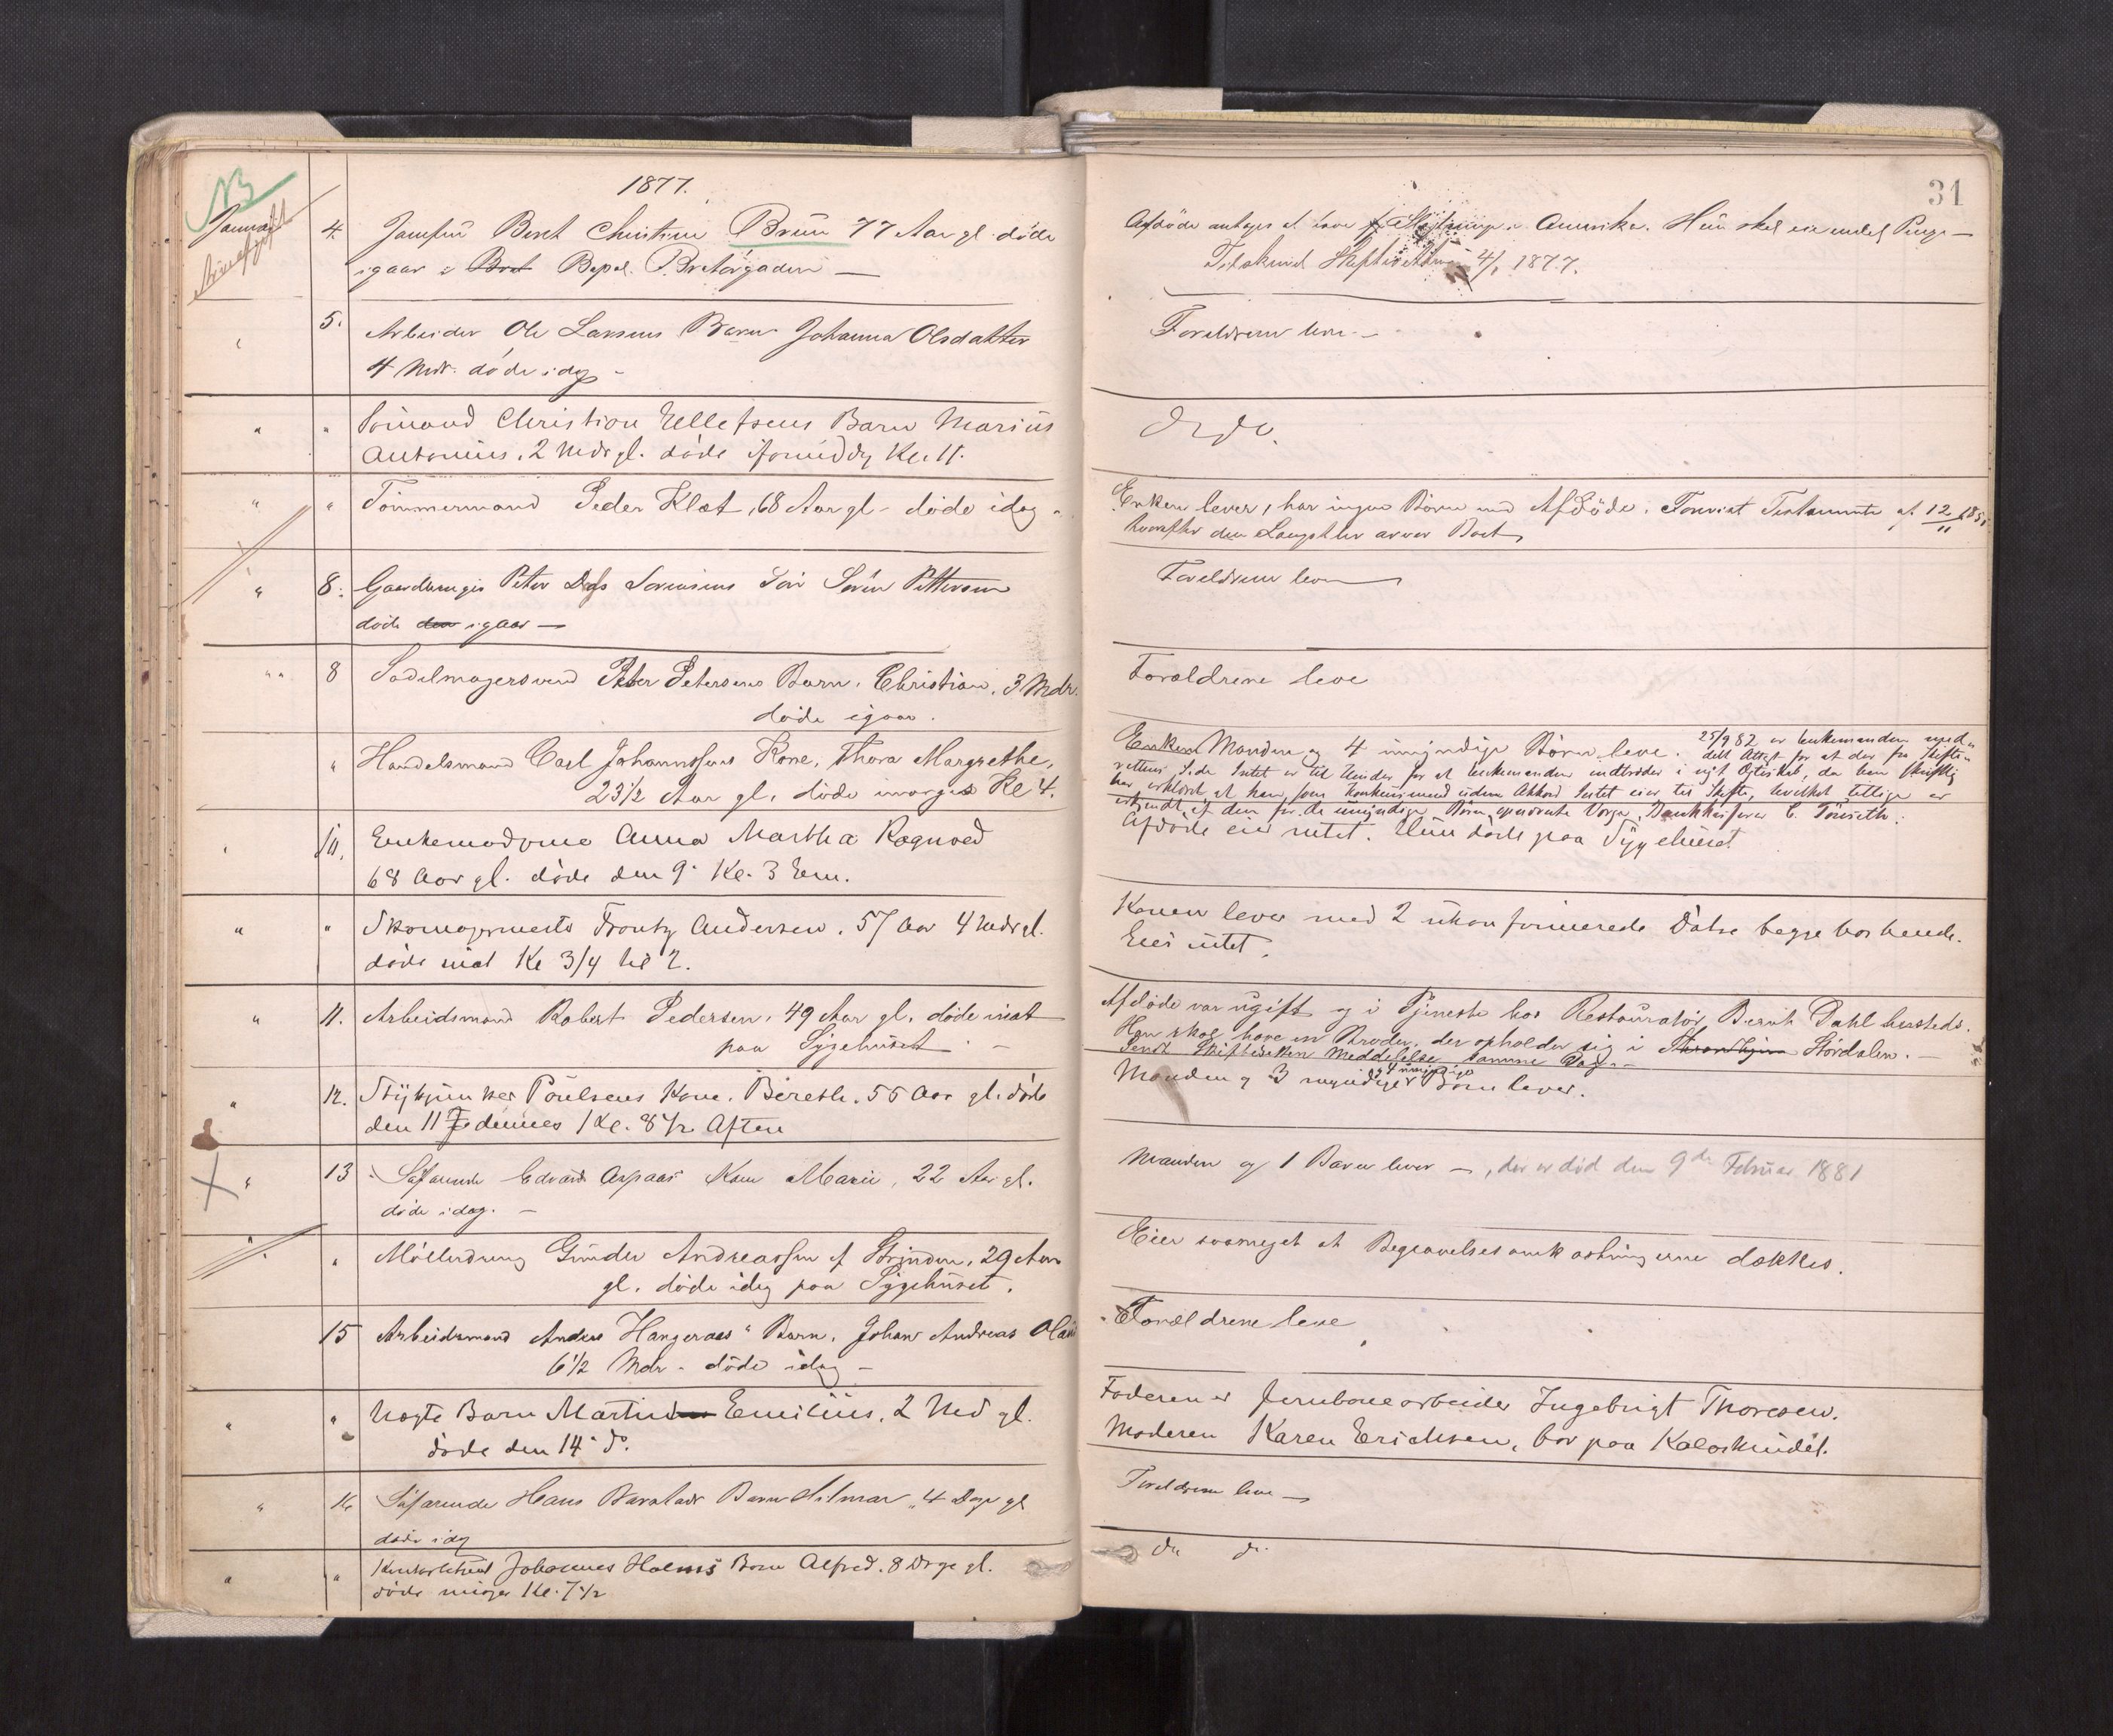 NB
1877.
31
Januar 4. Jomfru Berit Christine Brun 77 Aar gl. døde
igaar i Bret Bapel. Bratørgaden —
Afdøde antages at have Slægtninge i Amerika. Hun skal eie endel Penge —
Tilskrevet Skifteretten 4/1 1877.
5. Arbeider Ole Larsens Barn Johanna Olsdatter
4 Mdr. døde idag -
Forældrene leve —
" " Sømand Christian Ellefsens Barn Marius
Antonius. 2 Mdr gl. døde iformiddag Kl. 11.
do do.
" " Tømmermand Peder Klæt, 68 Aar gl - døde idag -
Enken lever, har ingen Børn med Afdøde. Forevist Testamente af 12/11
hvorefter den Længstlev arver Boet
" 8. Gaardbruger Peter Sørensens Søn Søren Pettersen
døde den igaar —
Forældrene leve —
" " 8 Sadelmagersvend Peter Petersens Barn. Christian. 3 Mdr.
døde igaar.
Forældrene leve
" Handelsmand Carl Johannssens Kone, Thora Margrethe,
23 1/2 Aar gl. døde imorges Kl 4.
Enken Manden og 4 umyndige Børn leve. 25/9 82 er Enkemanden med-
delt Attest for at der fra Skifte-
rettens Side Intet er til Hinder for at Enkemanden indtræder i nyt Ægteskab, da han skriftlig
har erklæret at han, som Konkursmand uden Akkord Intet eier til Skifte, hvilket tillige er
erkjendt af den for de umyndige Børn opnævnte Verge, Bankkasserer C.
10. Enkemadame Anna Martha Rognved
68 Aar gl. døde den 9. Kl. 3 Em.
Afdøde eier intet. Hun døde paa Sygehuset
" " Skomagermester Frantz Andersen. 57 Aar 4 Mdr gl.
døde inat Kl 3/4 til 2.
Konen lever med 2 ukonfirmerede Døtre begge hos hende.
Eier intet.
" 11. Arbeidsmand Robert Pedersen. 49 Aar gl. døde inat
paa Sygehuset. —
Afdøde var ugift og i Tjeneste hos Restauratør Bernt Dahl hersteds.
Han skal have en Broder, der opholder sig i Throndhjem Størdalen. —
Sendt Skifteretten Meddelelse samme Dag. —
" 12. Poulsens Kone. Bereth. 55 Aar gl. døde
den 11 dennes Kl. 8 1/2 Aften
Manden og 3 myndige og 4 umyndige Børn lever.
" 13 Søfarende Edvard Aspaas Kone Marie, 22 Aar gl.
døde idag. —
Manden og 1 Barn lever —, der er død den 9de Februar 1881
" " Møllerdreng Gunder Andreassen af Strinden, 29 Aar
gl. døde idag paa Sygehuset.
Eier saameget at Begravelsesomkostningerne dækkes.
15 Arbeidsmand Anders Hangeraas' Barn. Johan Andreas
6 1/2 Mdr - døde idag —
Forældrene leve
" " Uægte Barn Martin Emilius. 2 Mdr gl.
døde den 14 ds.
Faderen er Jernbanearbeider Ingebrigt Thoresen.
Moderen Karen Erichsen, bor paa Kalvskindet.
" 16 Søfarende Hans Barn Hilmar, 4 Dage gl
døde idag
Forældrene leve —
" " Johannes Holms Barn Alfred. 8 Dage gl.
døde imorges Kl. 7 1/2
do do.